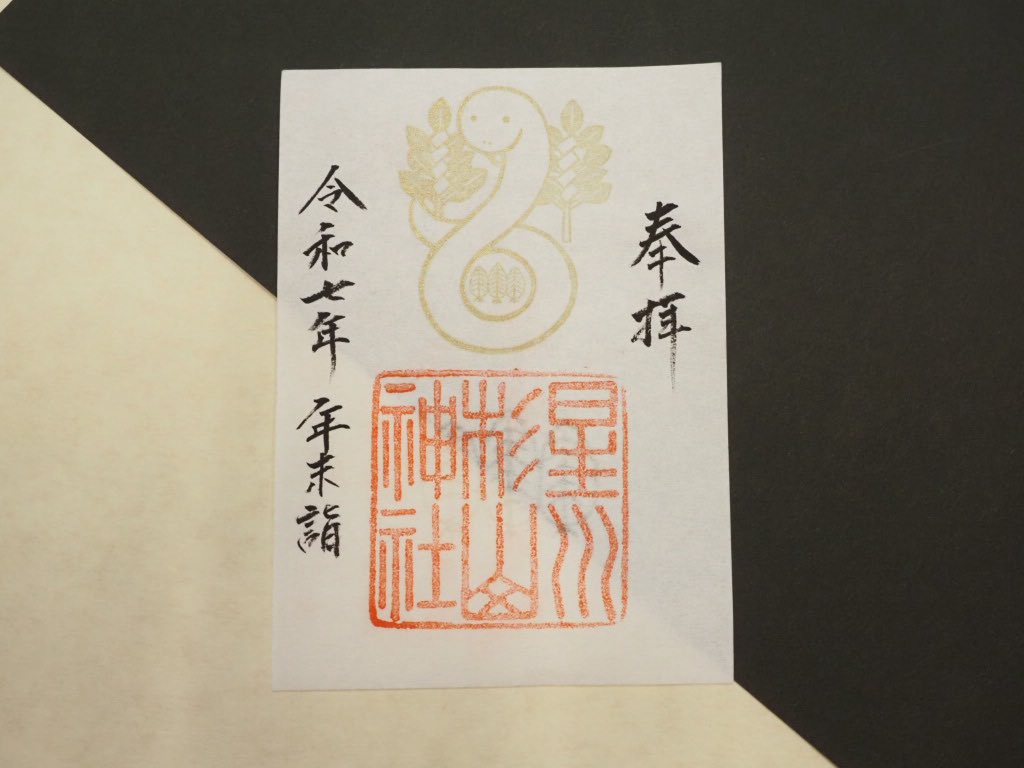 奉拝
星川
杉山
神社
令和七年 年末詣